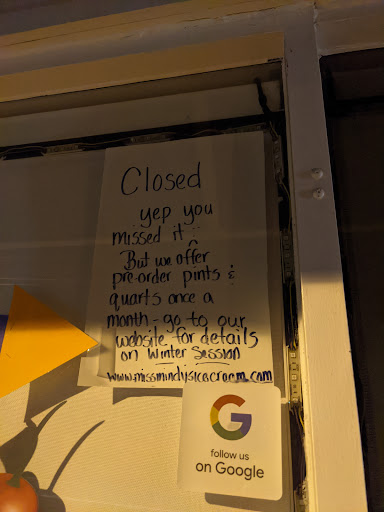 Closed
yep you
missed it :
But we offer
pre-order pints &
quarts once a
month - go to our
website for details
on Winter Session
www.missmindysicecream.com
G
follow us
on Google